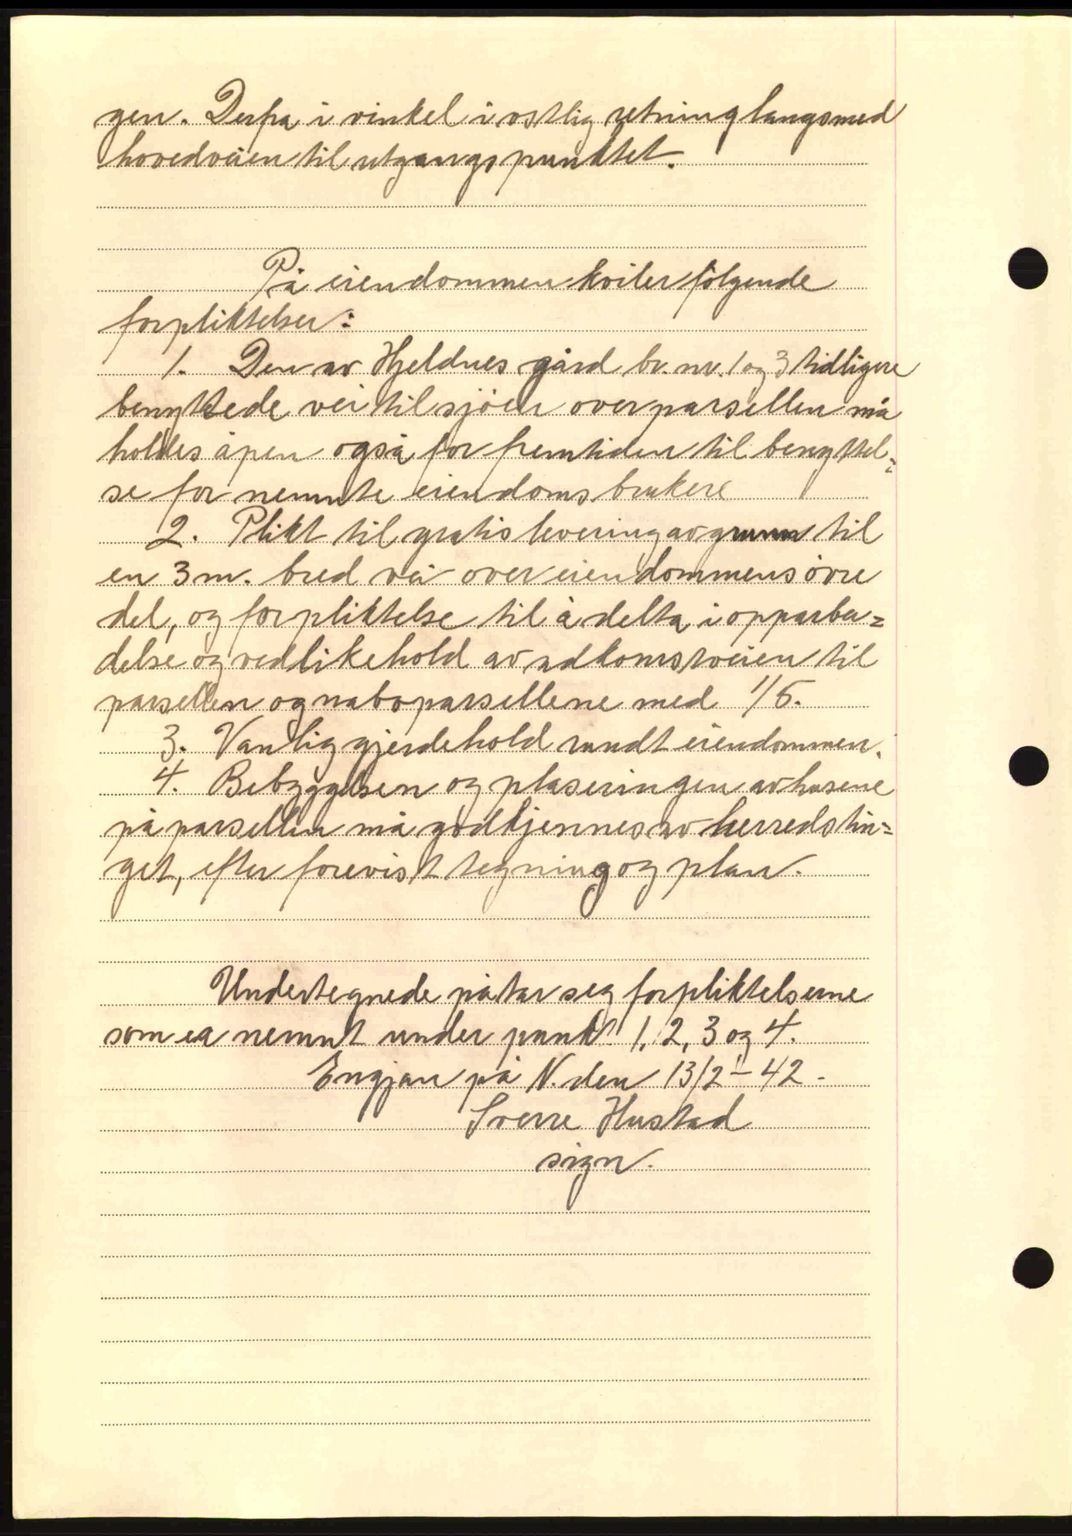 gen. Derfra i vinkel i østlig retning langs med
hovedveien til utgangspunktet.
På eiendommen hviler følgende
forpliktelser:
1. Den av Hjeldnes gård br. nr. 1 og 3 tidligere
benyttede vei til sjöen over parsellen må
holdes åpen også for fremtiden til benyttel=
se for nemnte eiendoms brukere
2. Plikt til gratis levering av grunn til
en 3 m. bred vei over eiendommens övre
del, og forpliktelse til å delta i opparbei=
delse og vedlikehold av adkomstveien til
parsellen og naboparsellene med 1/5.
3. Vanlig gjerdehold rundt eiendommen.
4. Bebyggelsen og plaseringen av husene
på parsellen må godkjennes av herredstin=
get, efter forevist tegning og plan.
Undertegnede påtar seg forpliktelserne
som er nemnt under punkt 1, 2, 3 og 4.
Engjan på N. den 13/2 - 42.
Sverre Hustad
sign.